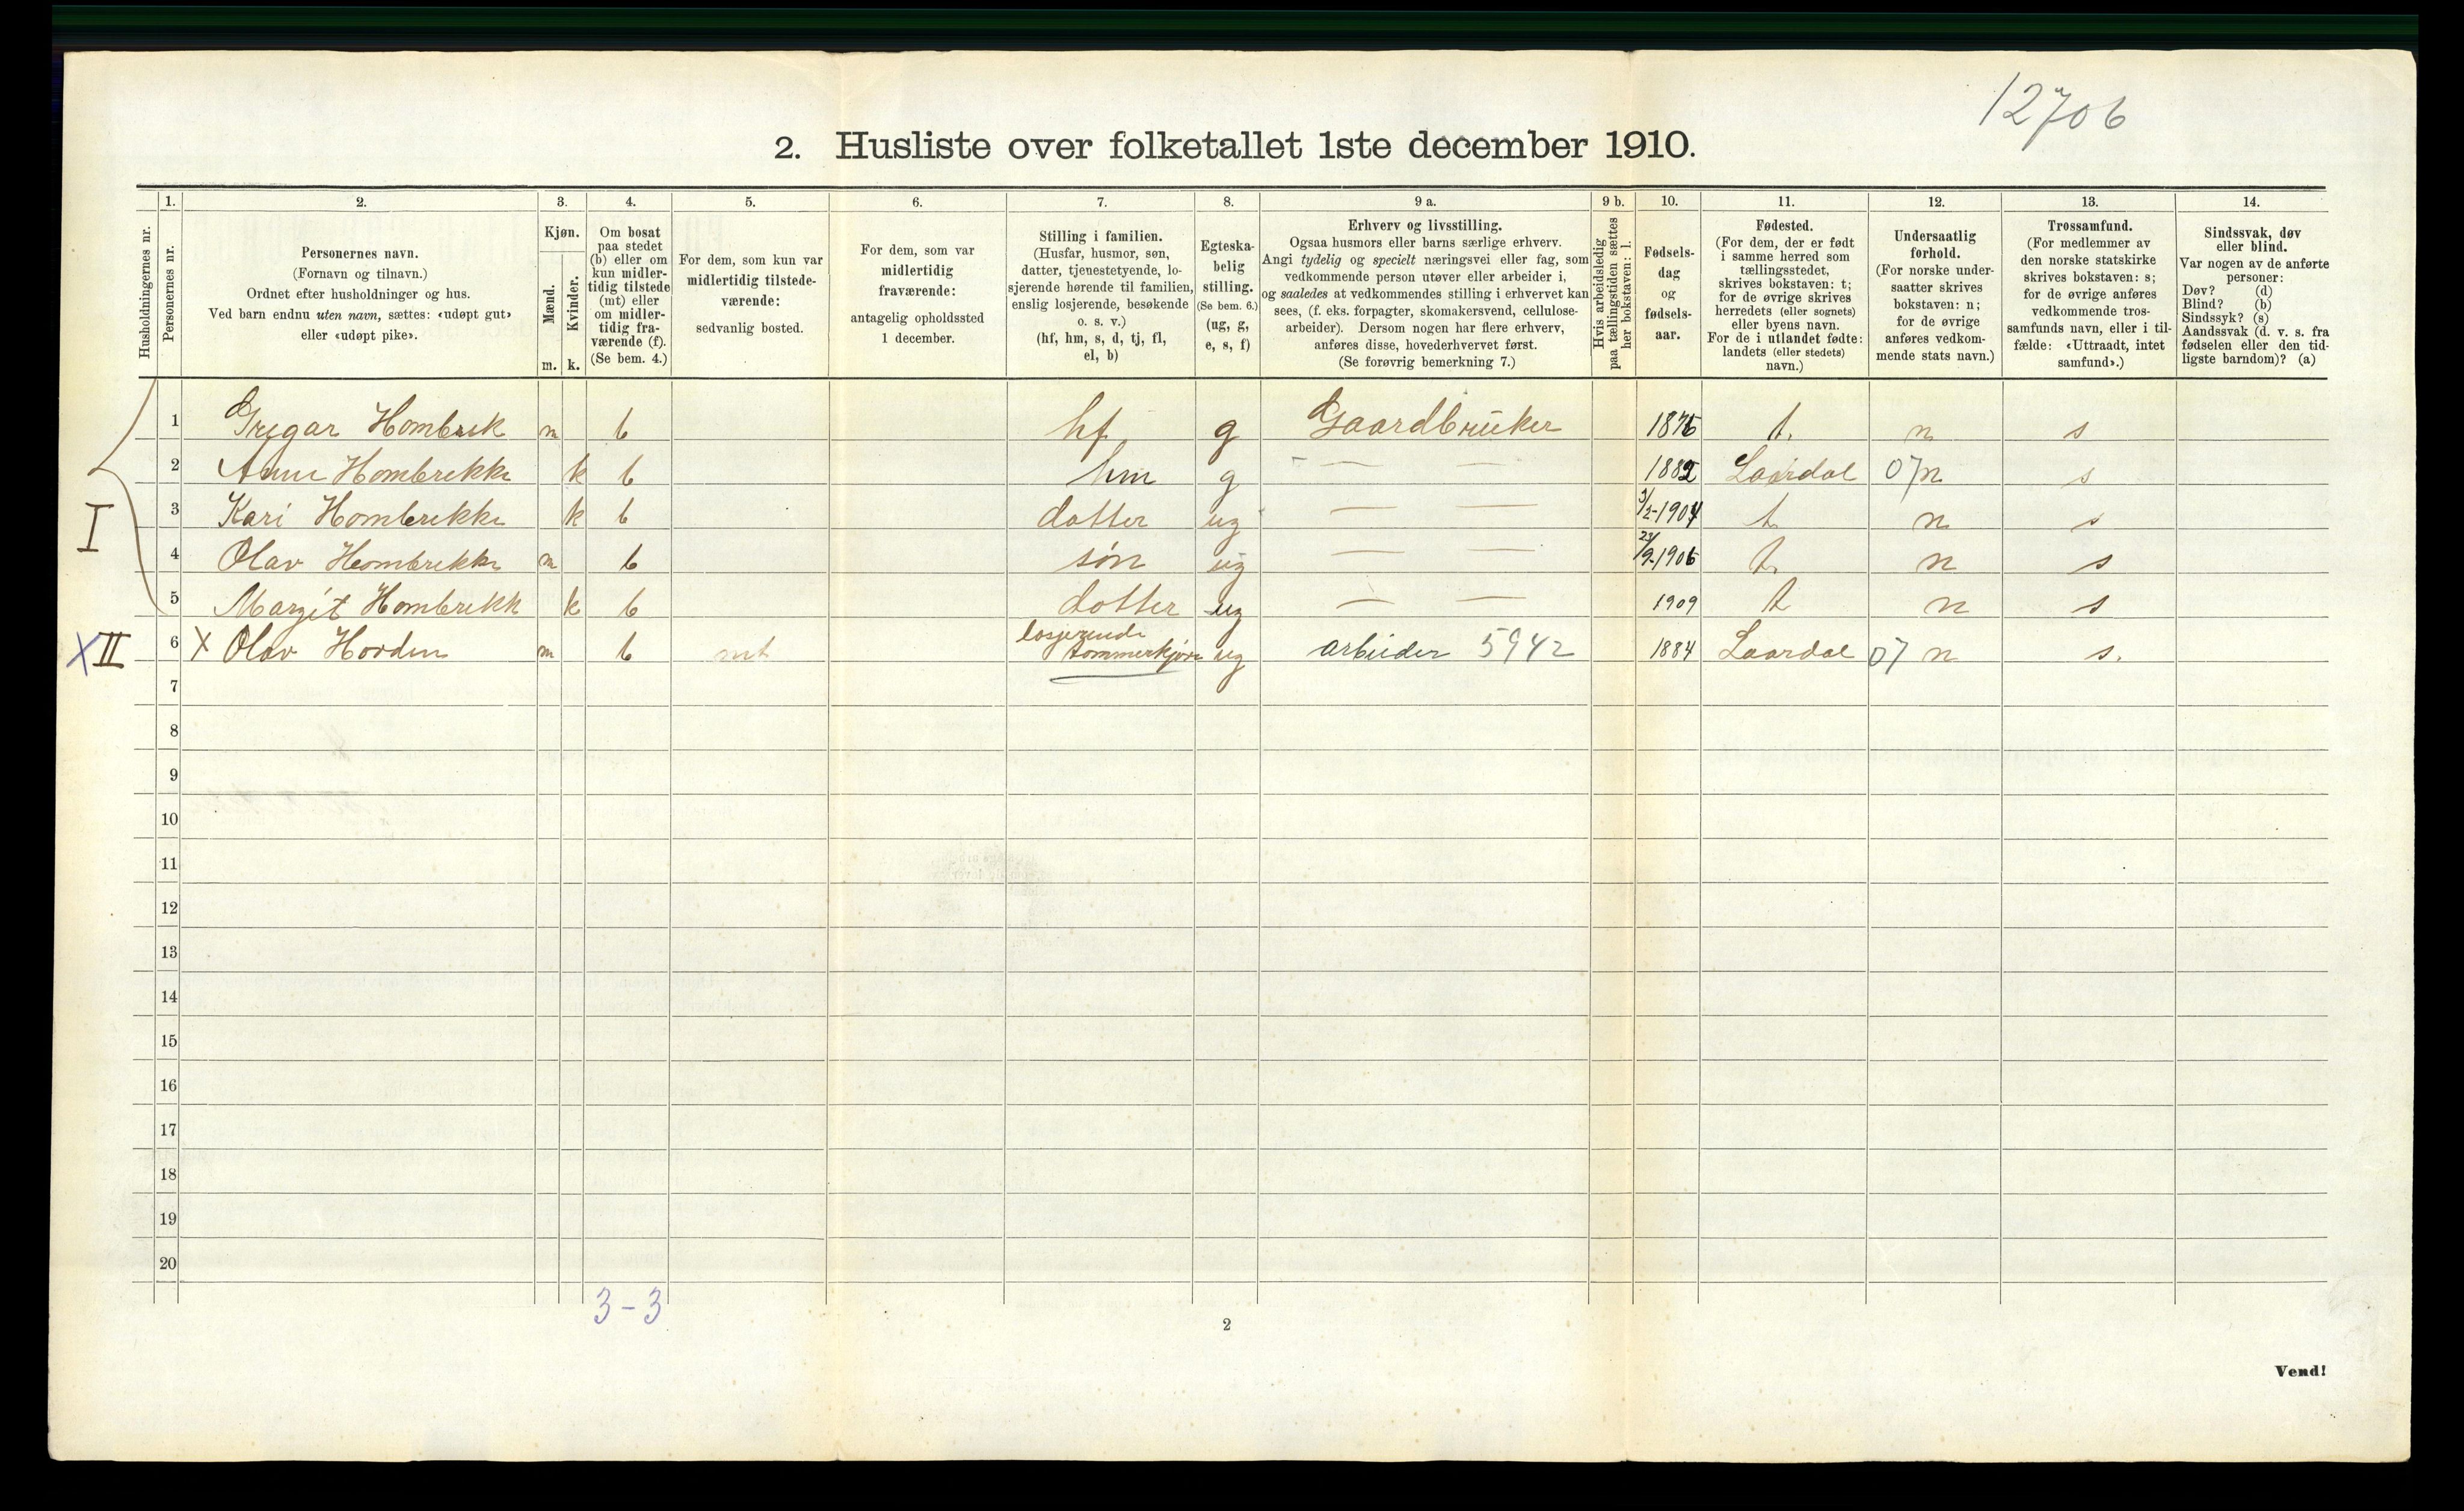 12706
2. Husliste over folketallet 1ste december 1910.
Husholdningernes nr.
1. 2. 3. 4. 5. 6. 7. 8. 9 a. 9 b. 10. 11. 12. 13. 14.
Personernes nr.
Personernes navn.
(Fornavn og tilnavn.)
Ordnet efter husholdninger og hus.
Ved barn endnu uten navn, sættes: «udøpt gut»
eller «udøpt pike».
Kjøn.
Mænd.
Kvinder.
m. k.
Om bosat
paa stedet
(b) eller om
kun midler-
tidig tilstede
(mt) eller
om midler-
tidig fra-
værende (f).
(Se bem. 4.)
For dem, som kun var
midlertidig tilstede-
værende:
sedvanlig bosted.
For dem, som var
midlertidig
fraværende:
antagelig opholdssted
1 december.
Stilling i familien.
(Husfar, husmor, søn,
datter, tjenestetyende, lo-
sjerende hørende til familien,
enslig losjerende, besøkende
o. s. v.)
(hf, hm, s, d, tj, fl,
el, b)
Egteska-
belig
stilling.
(Se bem. 6.)
(ug, g,
e, s, f)
Erhverv og livsstilling.
Ogsaa husmors eller barns særlige erhverv.
Angi tydelig og specielt næringsvei eller fag, som
vedkommende person utøver eller arbeider i,
og saaledes at vedkommendes stilling i erhvervet kan
sees, (f. eks. forpagter, skomakersvend, cellulose-
arbeider). Dersom nogen har flere erhverv,
anføres disse, hovederhvervet først.
(Se forøvrig bemerkning 7.)
Hvis arbeidsledig
paa tællingstiden sættes
her bokstaven: l.
Fødsels-
dag
og
fødsels-
aar.
Fødested.
(For dem, der er født
i samme herred som
tællingsstedet,
skrives bokstaven: t;
for de øvrige skrives
herredets (eller sognets)
eller byens navn.
For de i utlandet fødte:
landets (eller stedets)
navn.)
Undersaatlig
forhold.
(For norske under-
saatter skrives
bokstaven: n;
for de øvrige
anføres vedkom-
mende stats navn.)
Trossamfund.
(For medlemmer av
den norske statskirke
skrives bokstaven: s;
for de øvrige anføres
vedkommende tros-
samfunds navn, eller i til-
fælde: «Uttraadt, intet
samfund».)
Sindssvak, døv
eller blind.
Var nogen av de anførte
personer:
Døv? (d)
Blind? (b)
Sindssyk? (s)
Aandssvak (d. v. s. fra
fødselen eller den tid-
ligste barndom)? (a)
1 Gregar Hombrek m b hf g Gaardbruker 1875 t. n s
2 Anne Hombrekke k b hm g — — 1882 Laardal 07 n s
I 3 Kari Hombrekke k b dotter ug — — 3/2-1904 t. n s
4 Olav Hombrekke m b søn ug — — 23/9.1906 t. n s
5 Margit Hombrekk k b dotter ug — — 1909 t n s
X II 6 X Olav Hovden m b mt losjerende tommerkjøre ug arbeider 5942 1884 Laardal 07 n s.
7
8
9
10
11
12
13
14
15
16
17
18
19
20
3-3
2
Vend!